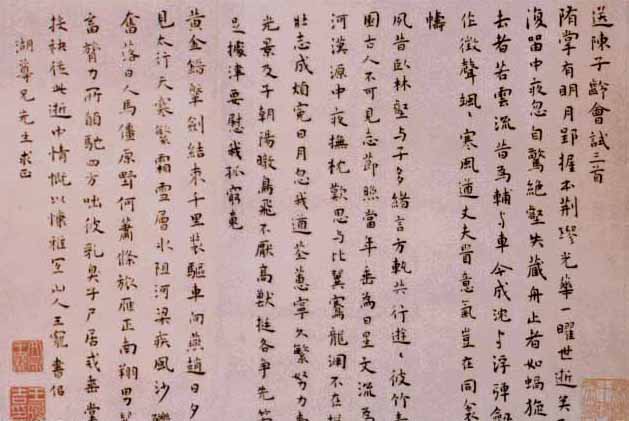 送陳子齡會試三首
隋掌有明月郢握不荊璆光華一曜世逝矣
復留中夜忽自驚絕壑失藏舟止者如蝸
去者若雲流昔為輔与車今成沈与浮彈劍
作徵聲颯〻寒風遒丈夫貴意氣豈在同衾
幬
夙昔臥林壑与子多緒言方軌共行遊〻彼竹
園古人不可見志節照當年垂為日星文流為
河漢源中夜撫枕歎思与比翼騫龍淵不在
壯志成煩冤日月忽我遒荃蕙寧久繁努力
光景及予朝陽暾鳥飛不厭高獸挺各爭先
足據津要慰我孤窮
黃金錯擊劍結束千里裝驅車向燕趙日夕
見太行天寒繁霜雪層冰阻河梁疾風沙礫
奮落日人馬僵原野何蕭條旅雁正南翔男
富膂力所願馳四方咄彼乳臭子尸居戒垂堂
扶袂從此逝中情慨以慷雅宜山人王寵書偈
湖華兄先生求正